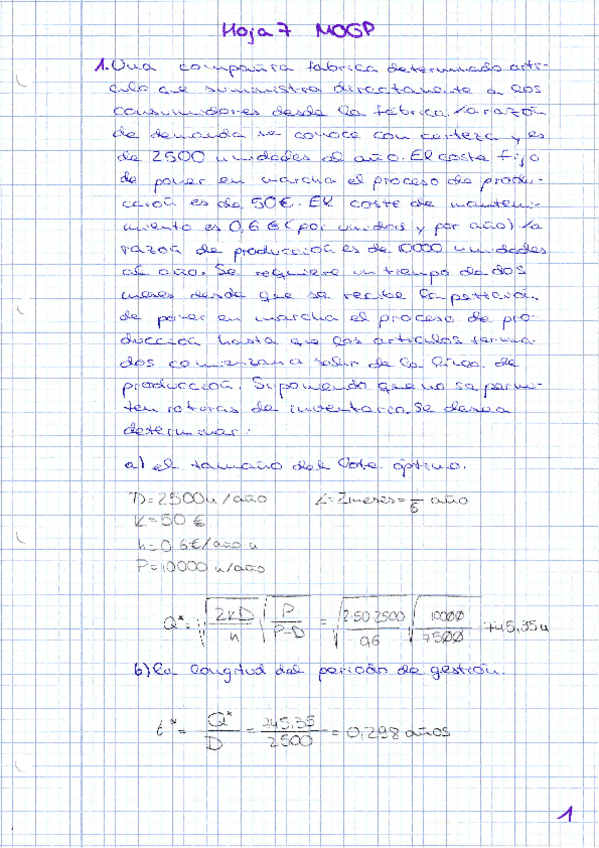 Hoja 7 MOGP
1. Una compañía fabrica determinado artí-
culo que suministra directamente a los
consumidores desde la fábrica. La razón
de demanda se conoce con certeza y es
de 2500 unidades al año. El coste fijo
de poner en marcha el proceso de produ-
cción es de 50€. El coste de manteni-
miento es 0,6 € (por unidad y por año) La
razón de producción es de 10000 unidades
al año. Se requiere un tiempo de dos
meses desde que se recibe la petición
de poner en marcha el proceso de pro-
ducción hasta que los artículos termina
dos comienzan a salir de la línea de
producción. Suponiendo que no se permi-
ten roturas de inventario. Se desea
determinar:
a) el tamaño del lote óptimo.
D=2500u/año L=2meses=1/6 año
K=50 €
h=0,6€/año u
P=10000 u/año
Q*=√(2KD/h) √(P/(P-D)) = √(2·50·2500/0,6) √(10000/7500) = 745,35u
b) la longitud del periodo de gestión.
t*= Q*/D = 745,35/2500 = 0,298 años
1